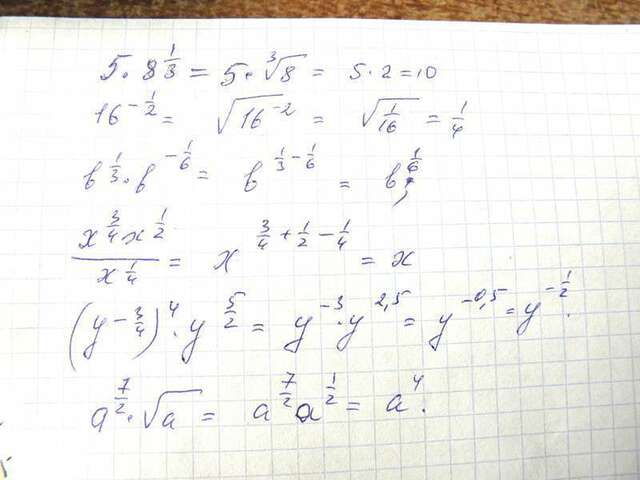 5·8^{1/3} = 5·∛8 = 5·2=10
16^{-1/2} = √(16^{-2}) = √(1/16) = 1/4
b^{1/3}·b^{-1/6} = b^{1/3-1/6} = b^{1/6};
(x^{3/4}x^{1/2})/(x^{1/4}) = x^{3/4+1/2-1/4} = x
(y^{-3/4})^4·y^{5/2} = y^{-3}·y^{2,5} = y^{-0,5} = y^{-1/2}.
a^{7/2}·√a = a^{7/2}a^{1/2} = a^4.